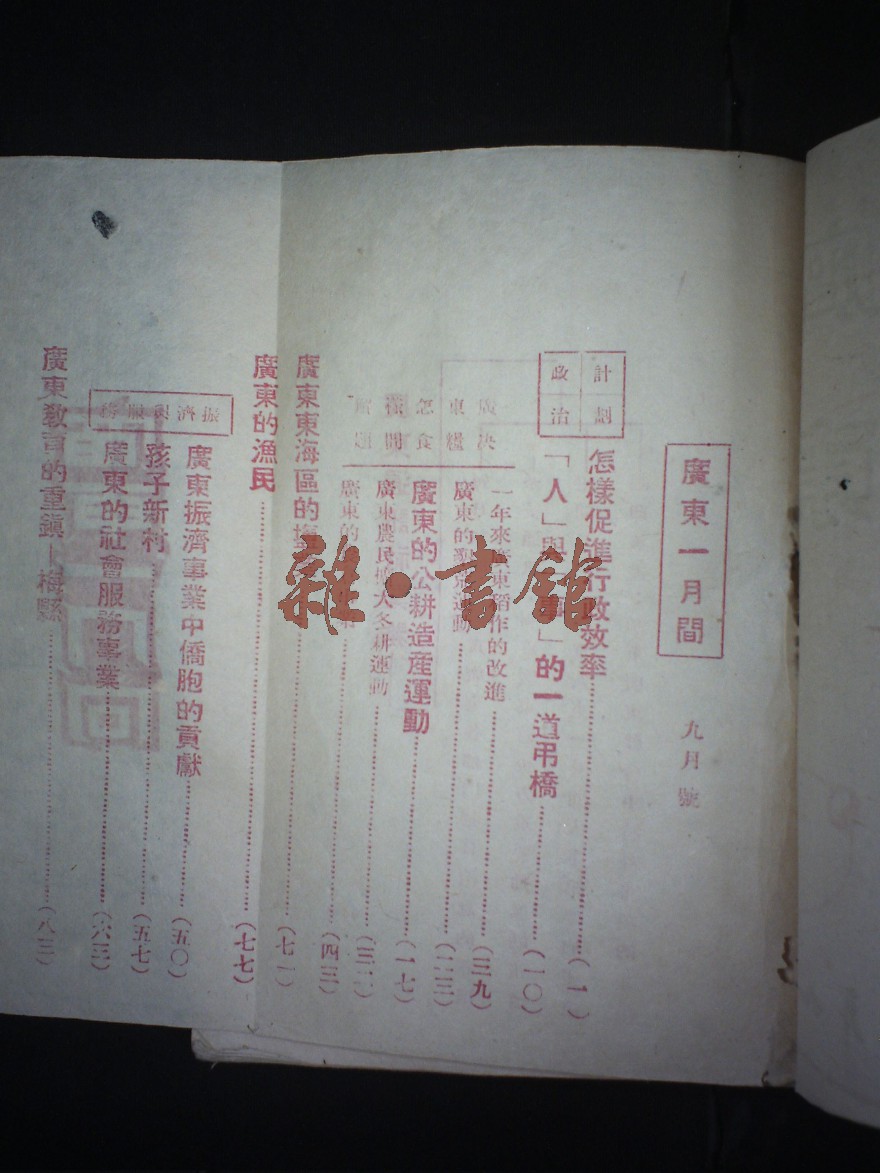 廣東一月間
九月號
計劃政治
怎樣促進行政效率……(一)
「人」與「」的一道弔橋……(一〇)
廣東怎樣決糧食問題
一年來廣東稻作的改進……(三九)
廣東的運動……(二三)
廣東的公耕造產運動……(一七)
廣東農民擴大冬耕運動……(三一)
廣東的……(四三)
廣東東海區的……(七一)
廣東的漁民……(七七)
振濟與服務
廣東振濟事業中僑胞的貢獻……(五〇)
孩子新村……(五七)
廣東的社會服務事業……(六三)
廣東教育的重鎮—梅縣……(八三)
雜·書館